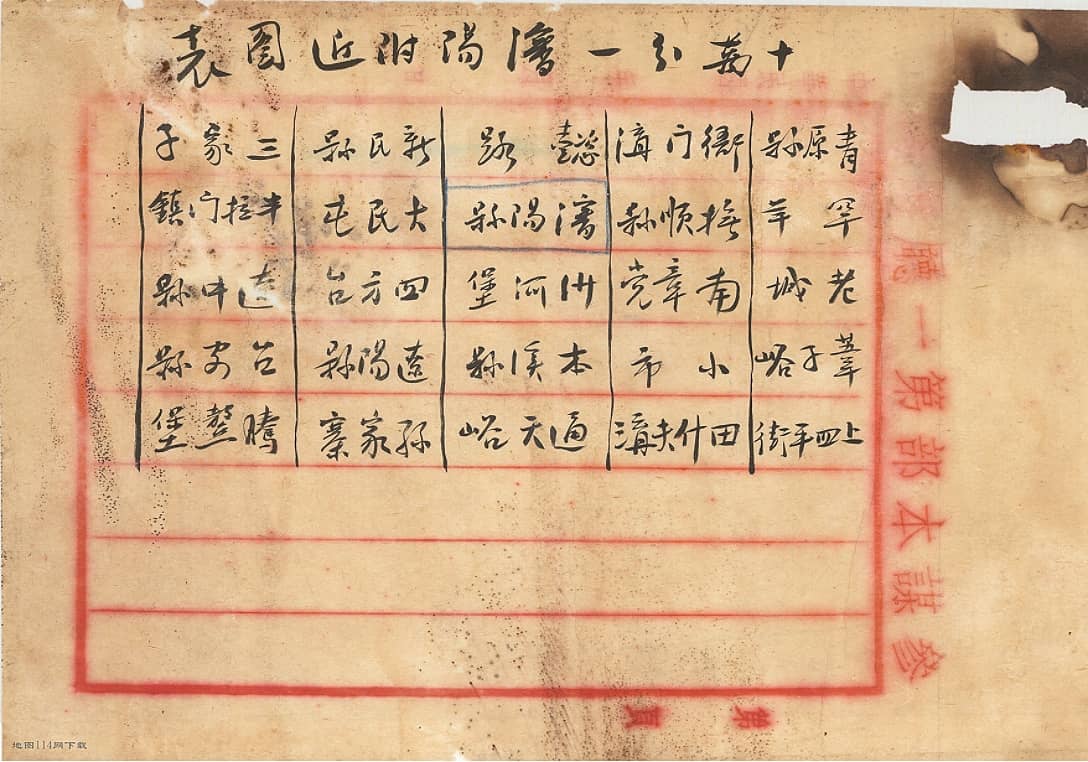 十萬分一瀋陽附近圖表
青原縣 衙门溝 懿路 新民縣 三家子
撫順縣 瀋陽縣 大民屯 半拉门鎮
老城 南章党 河堡 四方台 遼中縣
葦子峪 小市 本溪縣 遼陽縣 台安縣
上四平街 田什夫溝 通天峪 孫家寨 騰鰲堡
參謀本部第一廳
第 頁
地图114网下载